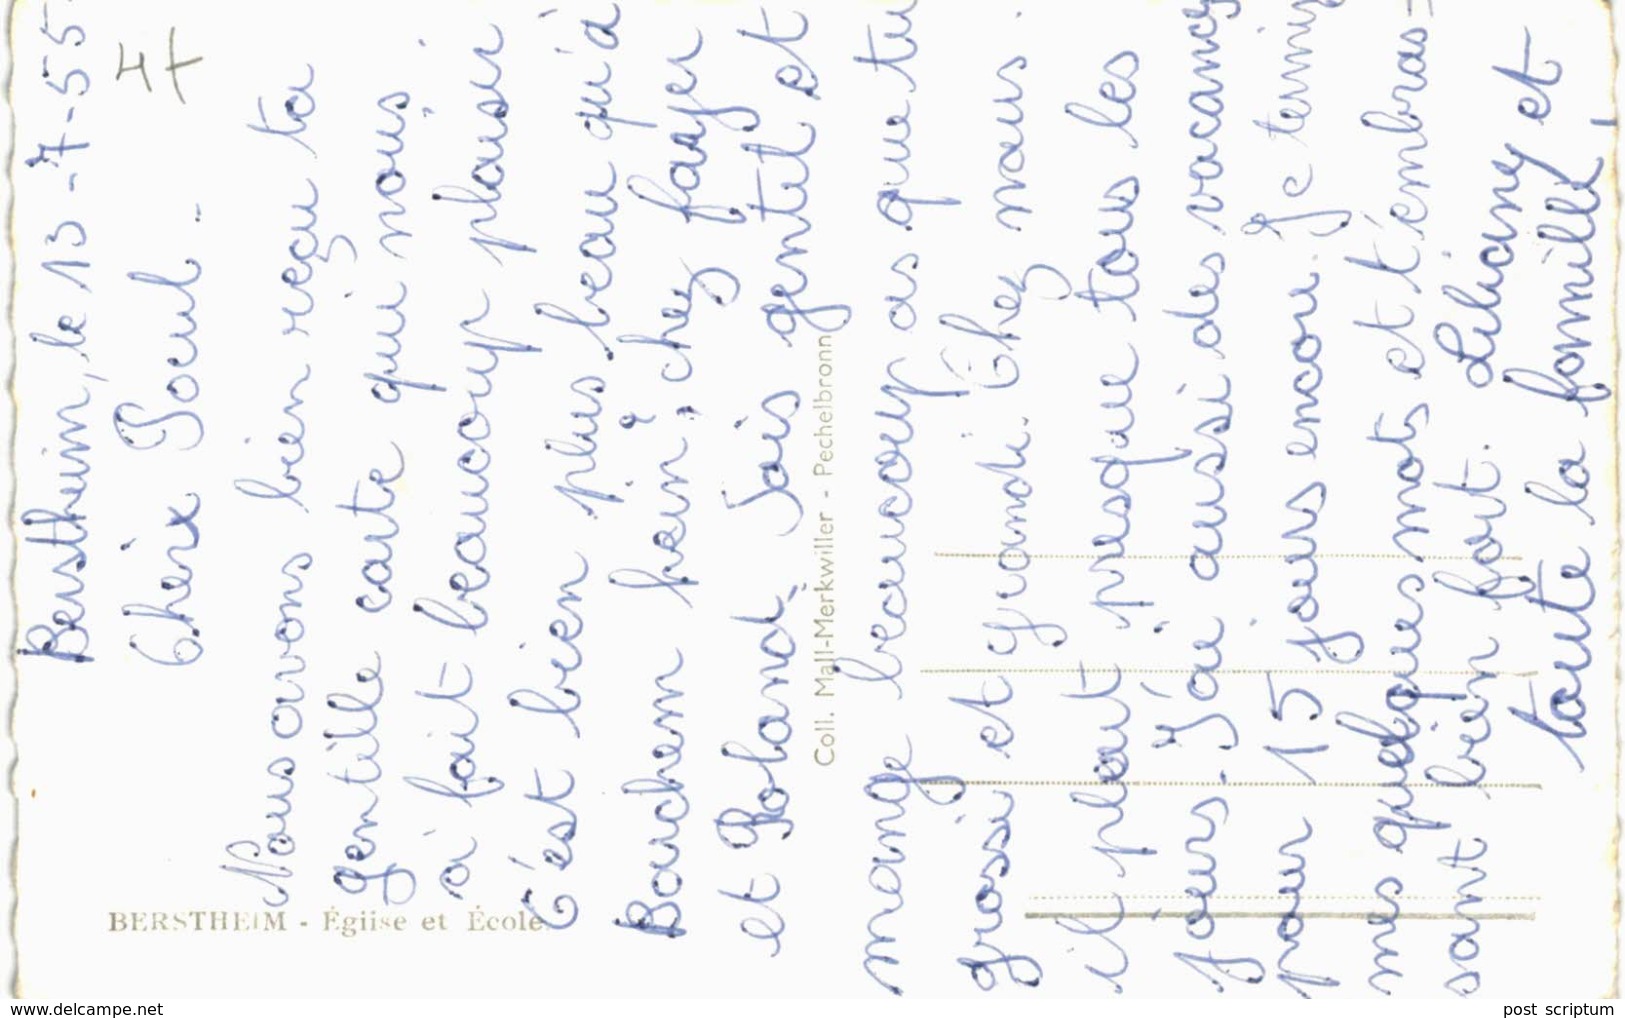 Berstheim, le 13-7-55
47
Cher Poeul.
Nous avons bien reçu ta
gentille carte qui nous
a fait beaucoup plaisir
C'est bien plus beau qu'à
Bouchem hein; chez
et Roland. Sois gentil et
mange beaucoup as que tu
grossi et grandi. Chez nous
il pleut presque tous les
jours. J'ai aussi des vacances
pour 15 jours encore. Je termine
mes quelques mots et t'embras=
sant bien fort. Liliane et
toute la famille
BERSTHEIM - Église et École.
Coll. Mall-Merkwiller - Pechelbronn
www.delcampe.net
post scriptum